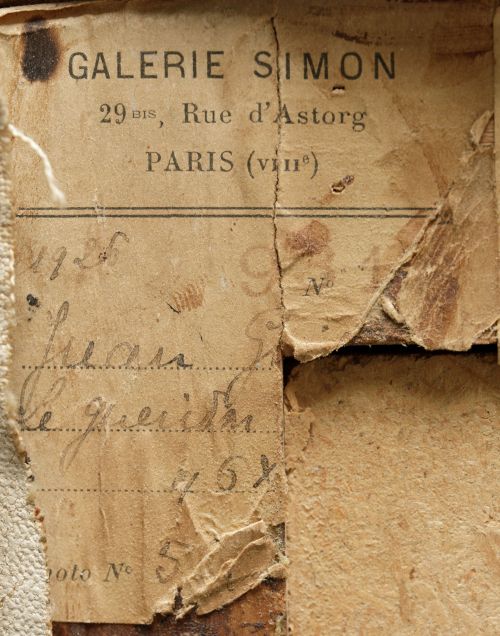 GALERIE SIMON
29 BIS, Rue d'Astorg
PARIS (VIIIe)
1926
No
Juan G
le gueridon
46 x
hoto No 5